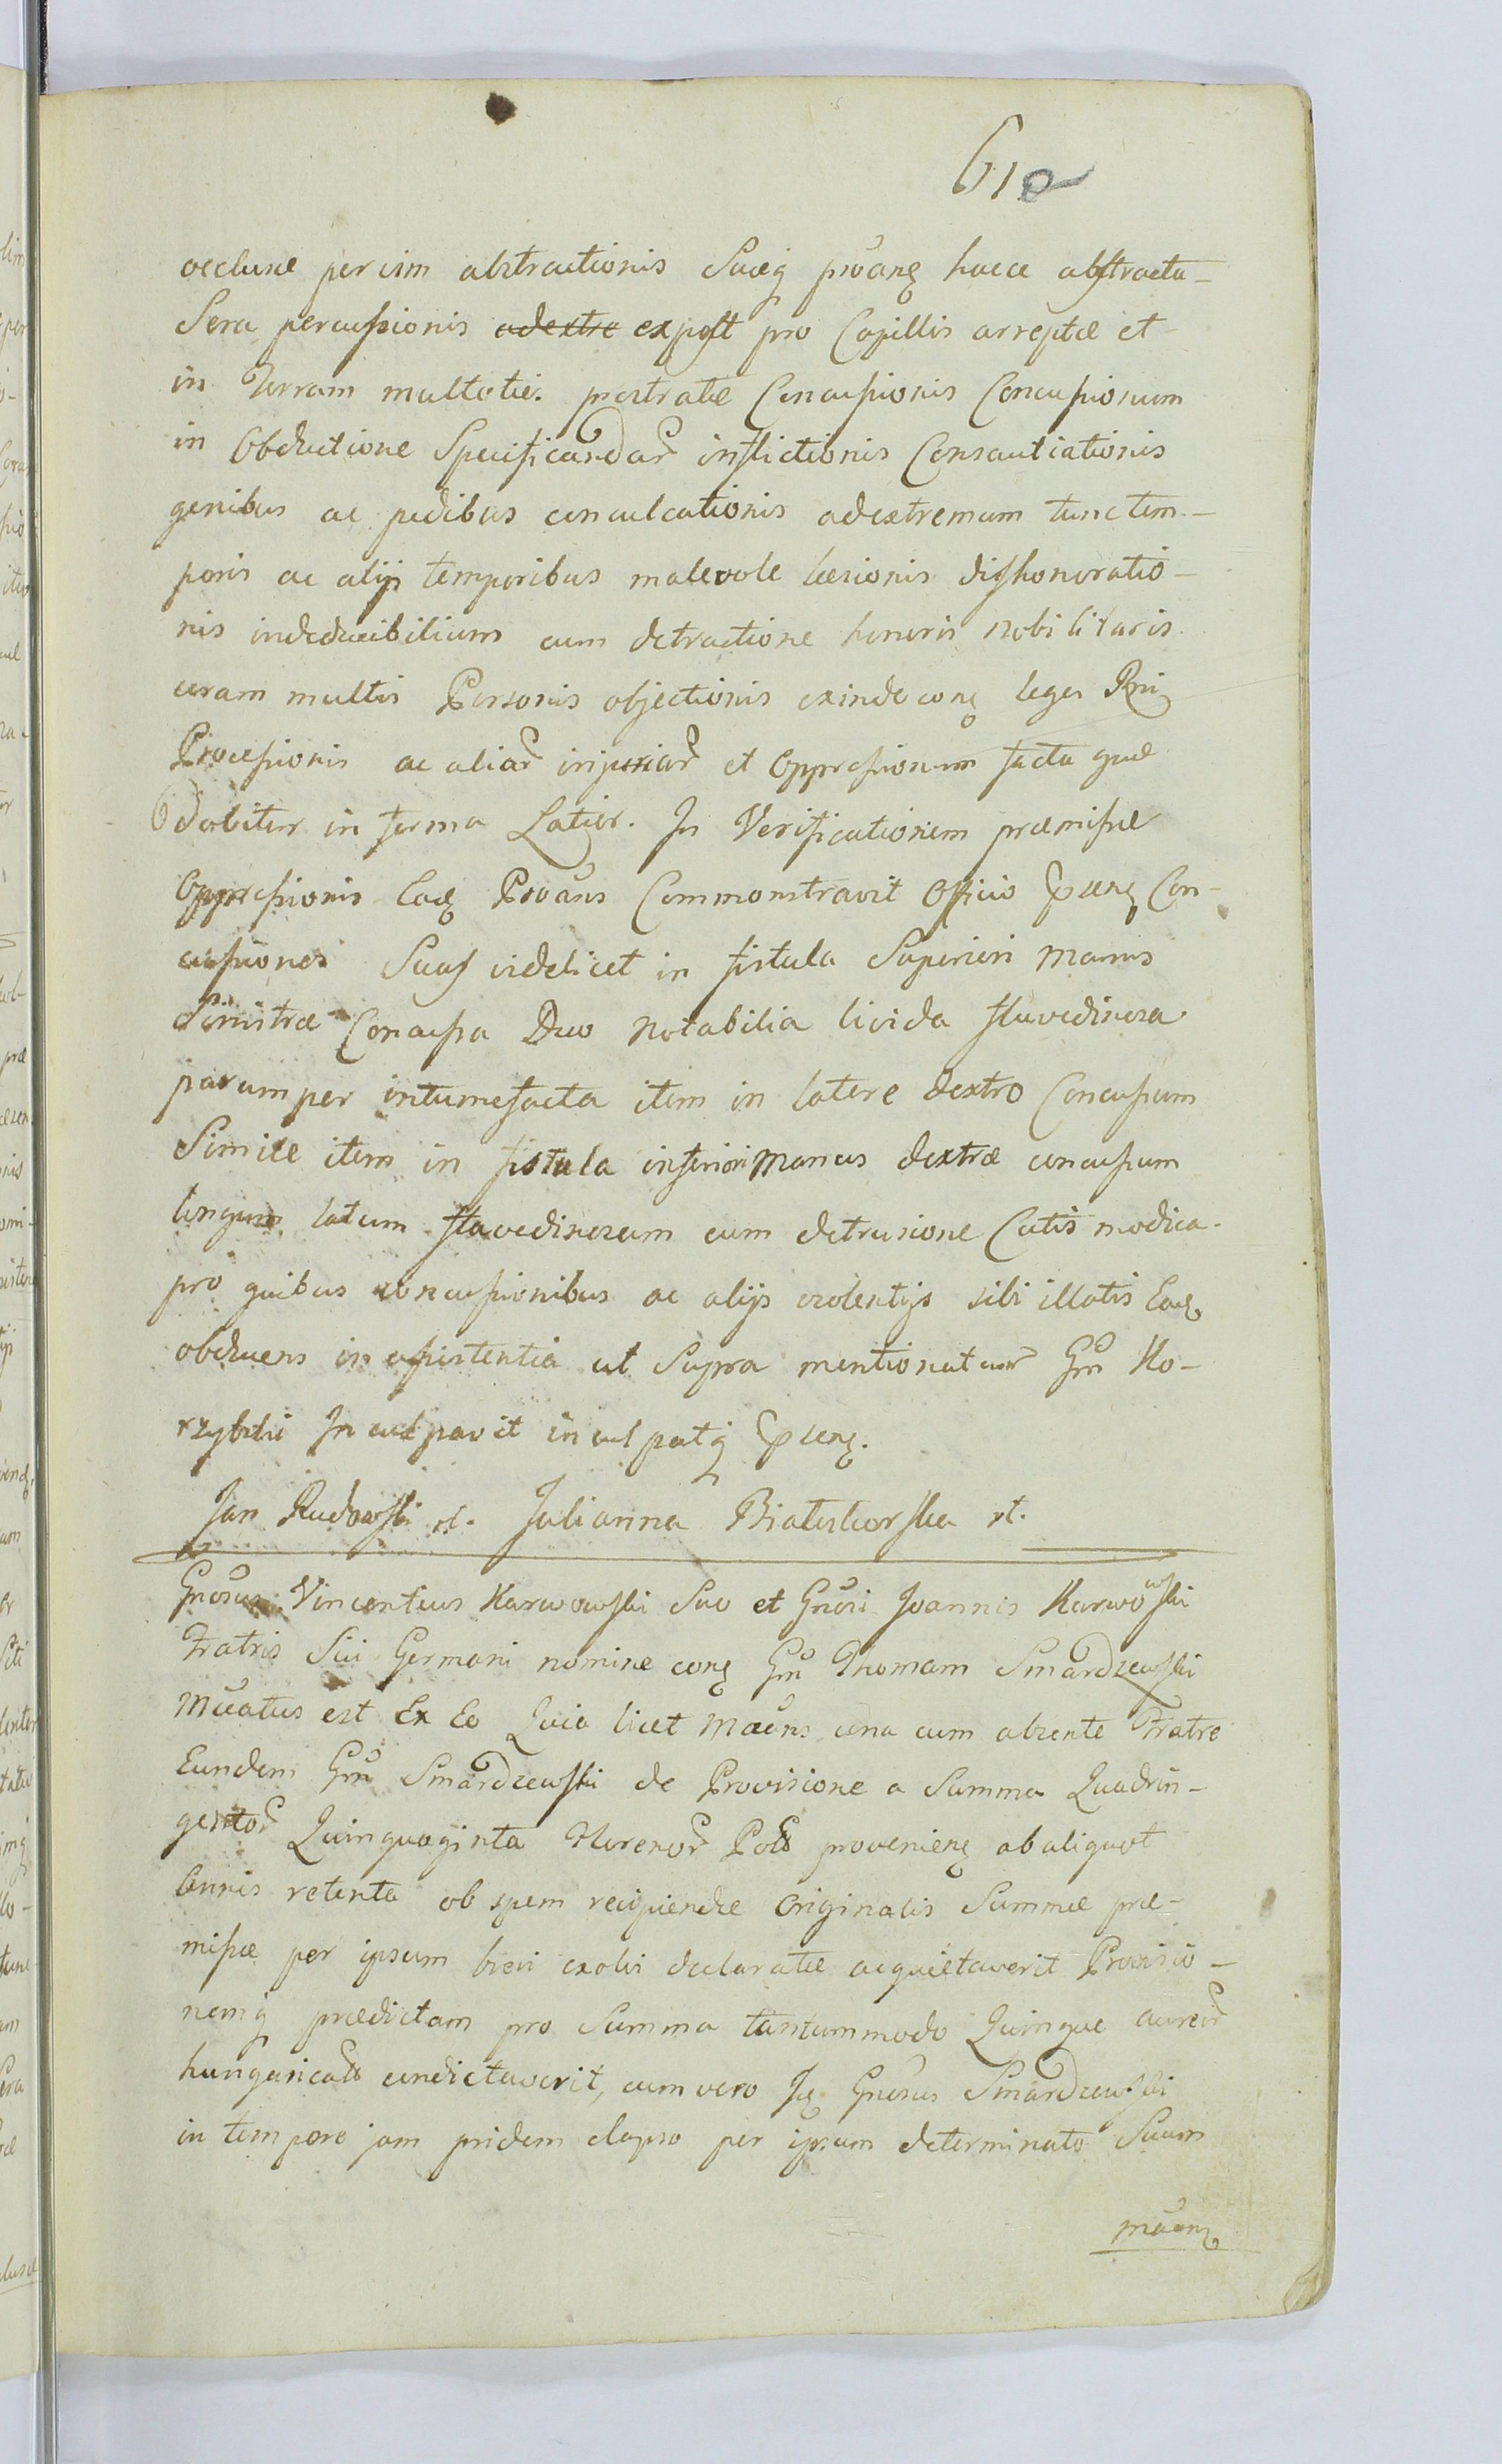 610
occlusæ per vim abstractionis Suæq prõanę hacce abstracta
Sera percussionis adextre expost pro Capillis arreptæ et
in Terram multotie. prostratæ Concussionis Concussionum
in Obductione Specificandar̃ inflictionis Consautiationis
genibus ac pedibus conculcationis adextremum tunc tem-
poris ac alijs temporibus malevole læsionis dishonoratio-
nis indeducibilium cum detractione honoris nobilitaris
coram multis Personis objectionis exinde conę leges Rni
Processionis ac aliar̃ injuriar̃ et Oppressionum facta quæ
dabitur in forma Latior. In Verificationem præmissæ
Oppressionis Eadę Proãns Commonstravit Officio Con-
cussiones Suas videlicet in fistula Superiori manus
Sinistræ Concussa Duo notabilia livida flavedinosa
parumper intumefacta item in latere dextro Concussum
Simile item in fistula inferiori Manus dextræ concussum
longum latum flavedinosum cum detrusione Cutis modica
pro quibus concussionibus ac alijs violentijs sibi illatis Eadę
obducens in assistentia ut Supra mentionatum Gñm Ko-
rzybski Inculpavit inculpatq
Jan Rudowski rt. Julianna Białosuorska rt.
Gnõsus Vincentius Karwowski Suo et Gnõsi Joannis Karwowski
Fratris Sui Germani nomine conę Gñm Thomam Smardzewski
Mũatus est Ex Eo Quia licet Mũans una cum absente Fratre
Eundem Gñm Smardzewski de Provisione a Summa Quadrin-
gentor̃ Quinquaginta Florenor̃ Pols provenienę ab aliquot
Annis retenta ob spem recipiendæ Originalis Summæ præ-
missæ per ipsum brevi exolvi declaratæ acquietaverit Provisio-
nemq prædictam pro Summa tantummodo Quinque aureor̃
hungaricals condictaverit, cum vero Iſę Gnõsus Smardzewski
in tempore jam pridem elapso per ipsum determinato Suum
mũanę